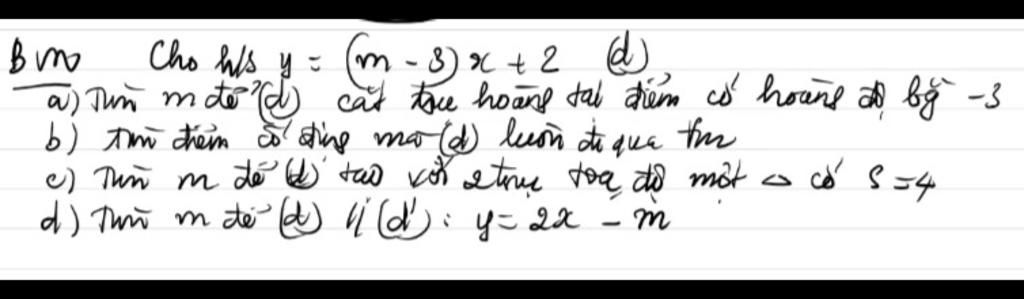 Cho h/s y = (m - 3)x + 2 (d)
a) Tìm m để (d) cắt trục hoành tại điểm có hoành độ bg -3
b) Tìm điểm cố định mà (d) luôn đi qua
c) Tìm m để (d) tạo với 2 trục toạ độ một △ có S = 4
d) Tìm m để (d) // (d'): y = 2x - m